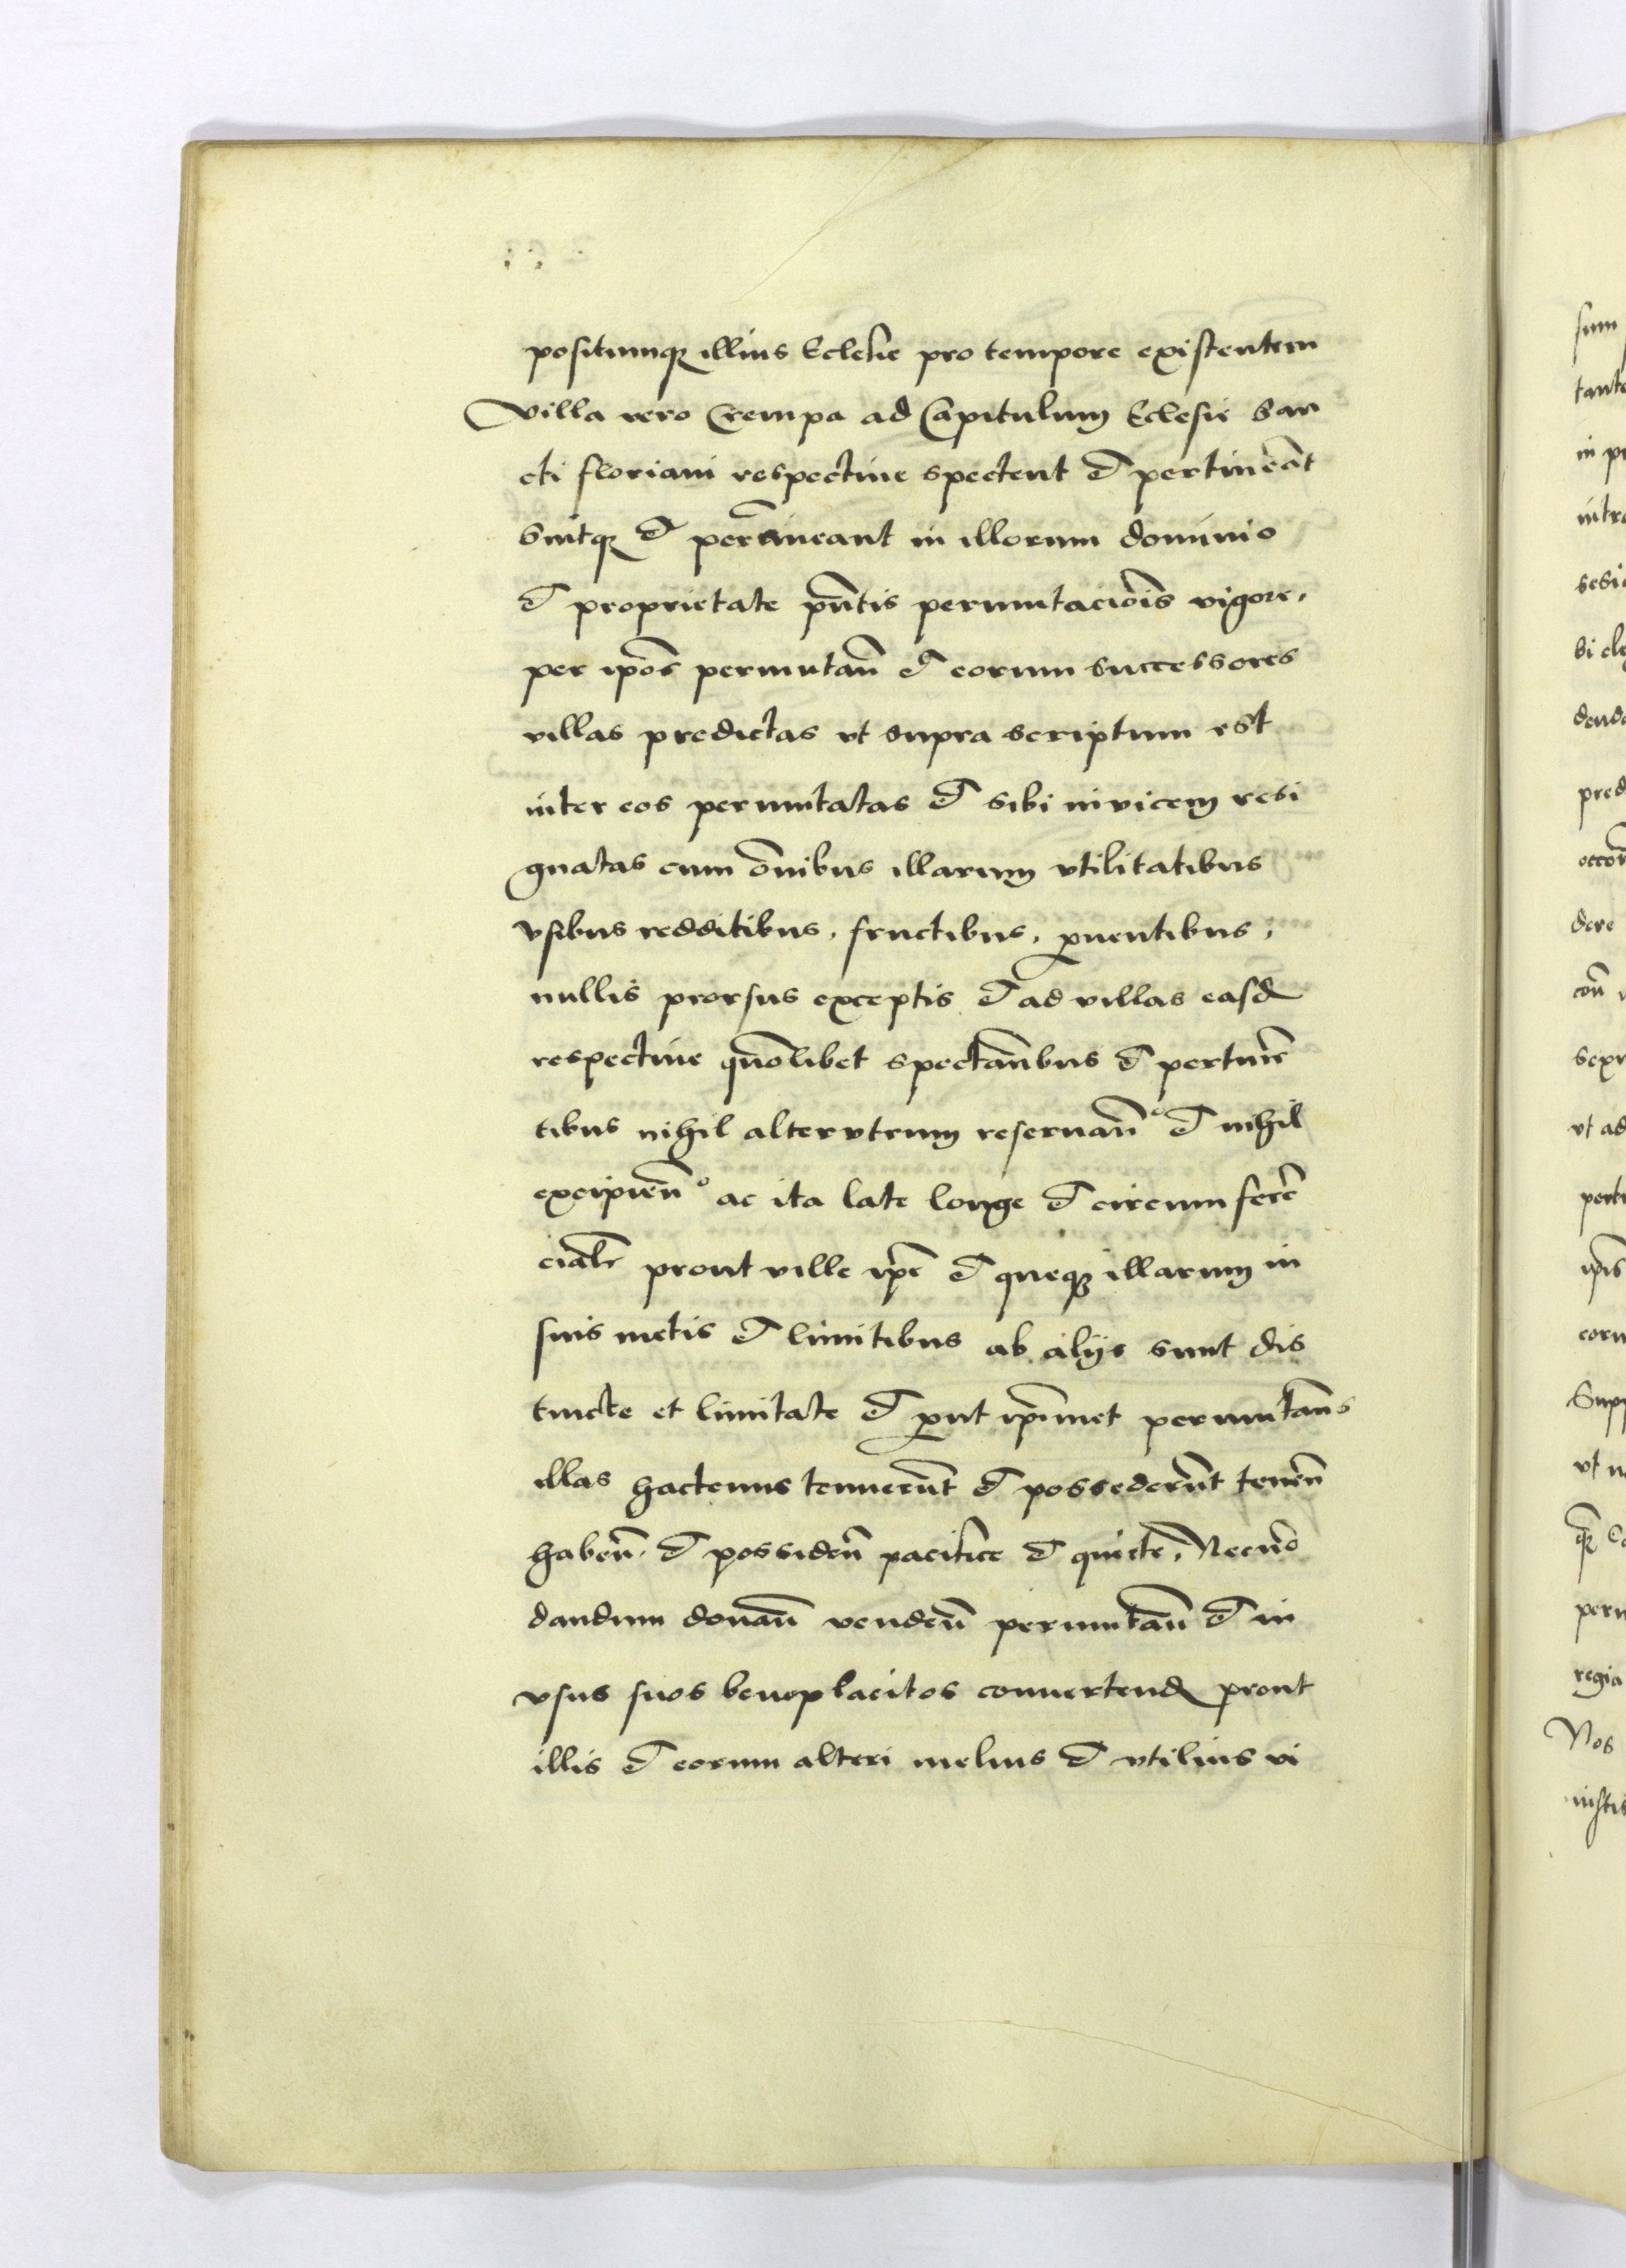 positumq; illius Eclesie pro tempore existentem
Villa vero Crempa ad Capitulum Eclesie San
cti floriani respective spectent et pertineāt
Sintq; et permāneant in illorum dominio
et proprietate pn̄tis permutaciōis vigore,
per ip̄os permutan̄ et eorum successores
villas predictas vt supra scriptum est
inter eos permutatas et sibi invicem resi
gnatas cum ōnibus illarum vtilitatibus
vsibus redditibus, fructibus, ꝓuentibus,
nullis prorsus exceptis et ad villas easd
respectiue quōlibet spectan̄bus et pertinē
tibus nihil altervtrum reseruan̄° et nihil
excipien̄° ac ita late longe et circumferē
cialr̄ prout ville ip̄e et queq; illarum in
suis metis et limitibus ab alijs sunt dis
tincte et limitate et ꝓut ip̄imet permutan̄s
illas hactenus tenuerūt et possederūt tenen̄
haben̄. et possiden̄ pacifice et quiete, Necnō
dandum donan̄ venden̄ permutan̄ et in
vsus suos beneplacitos conuertend prout
illis et eorum alteri melius et vtilius vi
sum
in
Nos